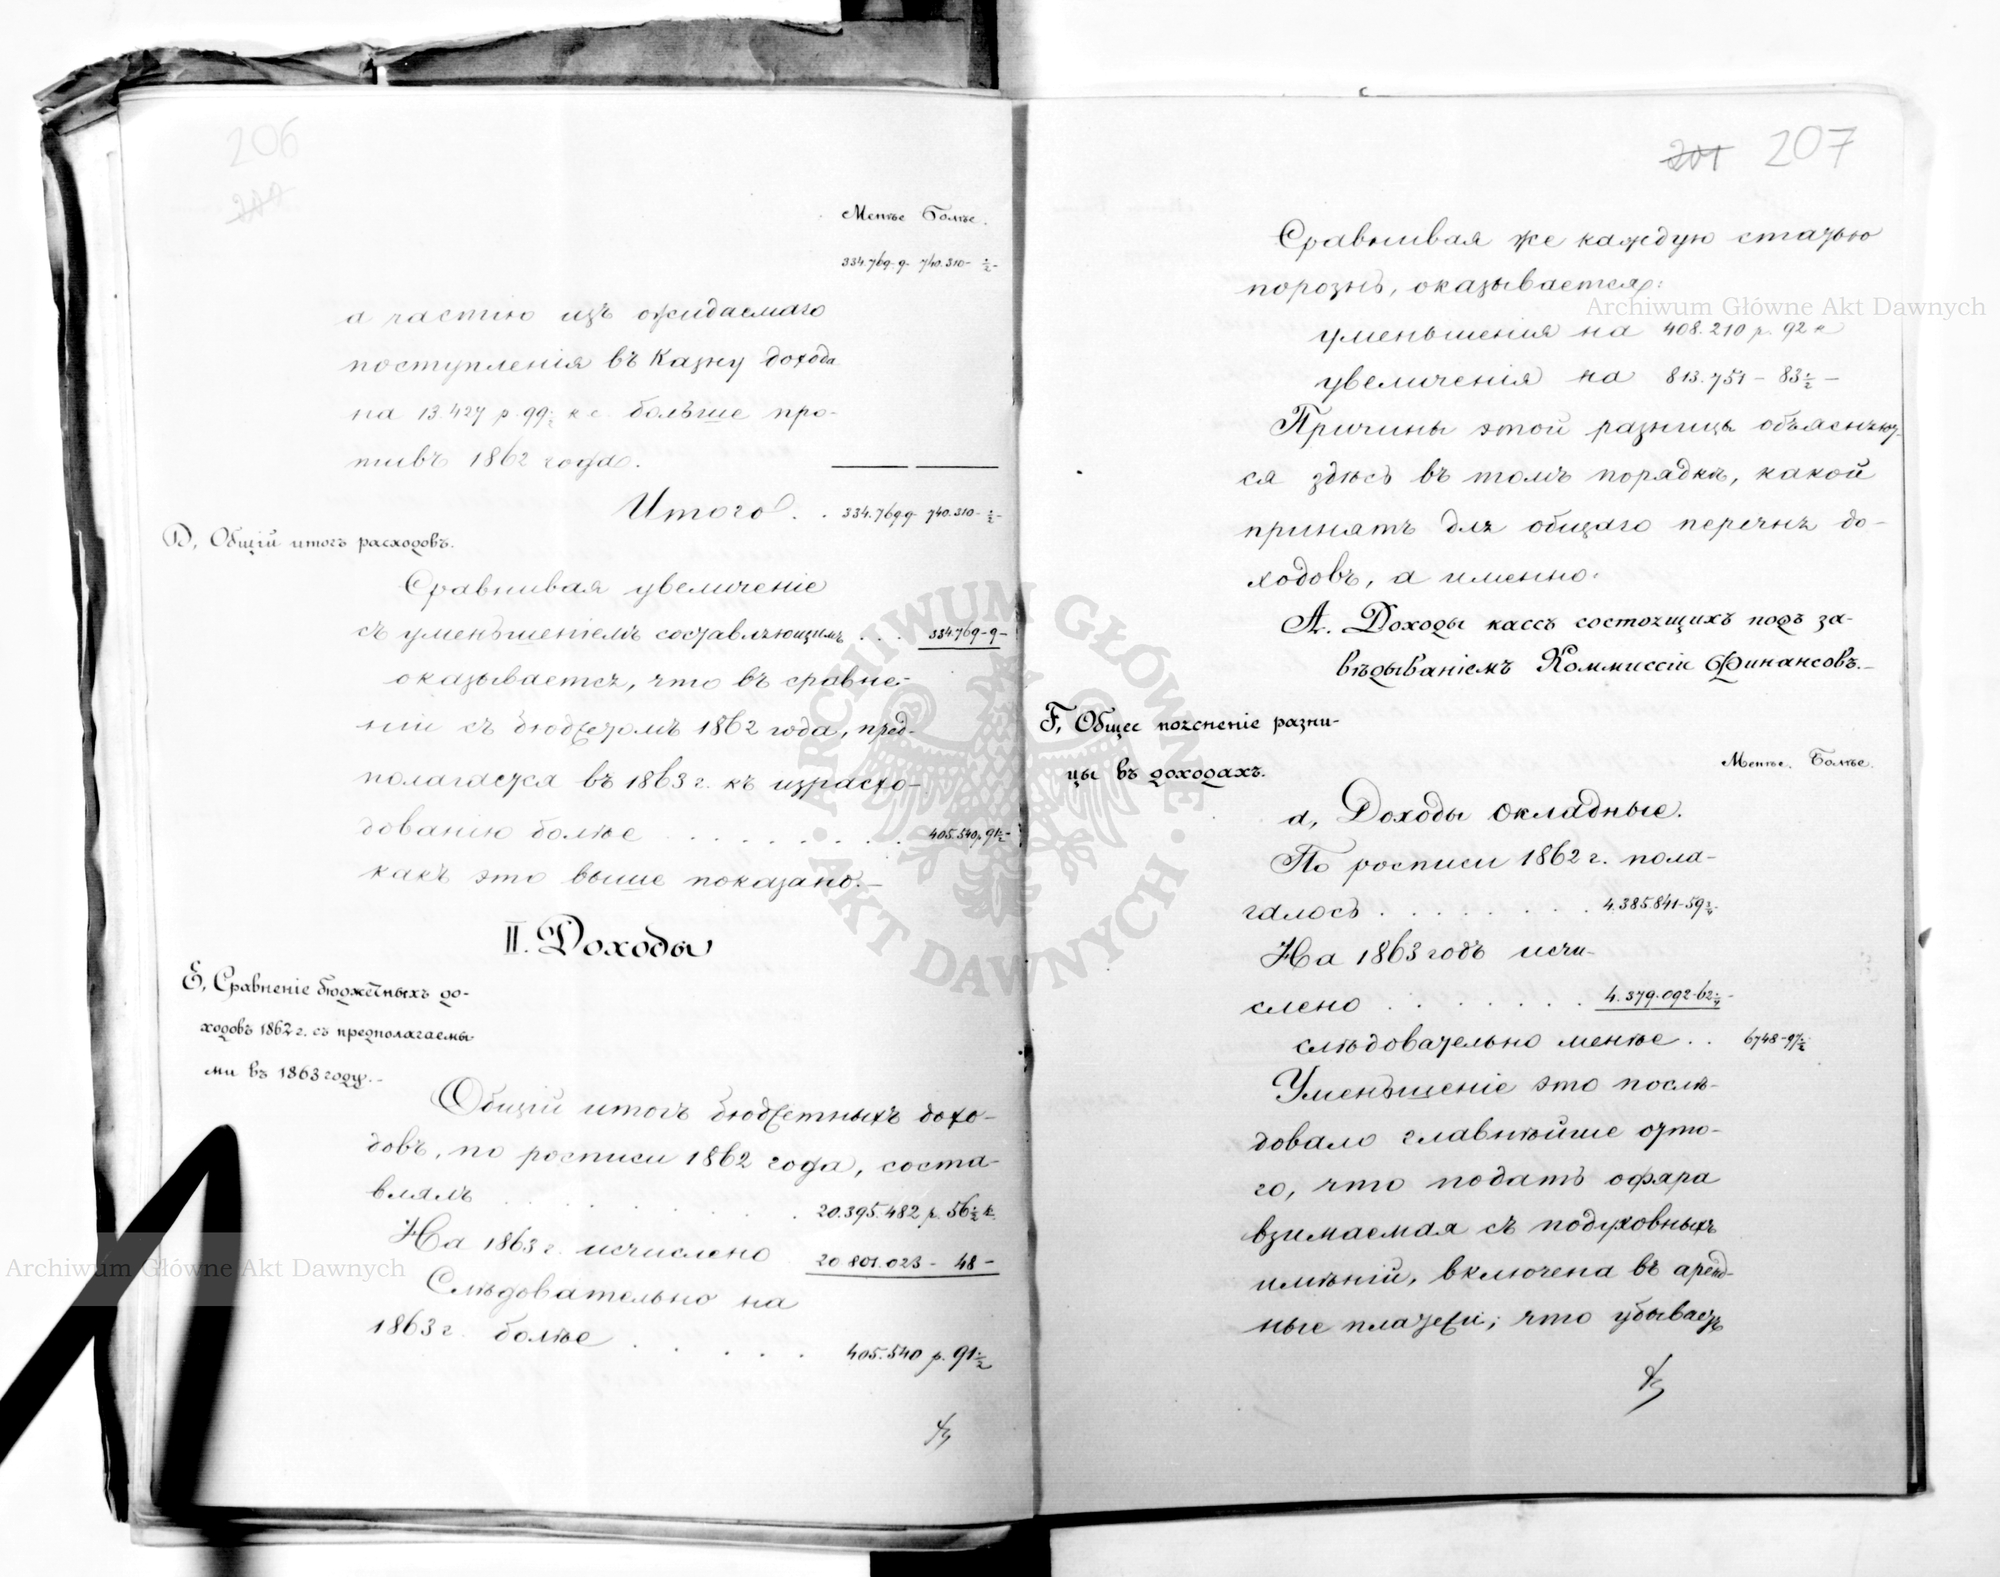 206
Менѣе Болѣе.
334.769-9- 740.310-½-
а частію изъ ожидаемаго
поступленія въ Казну дохода
на 13.427 р. 99½ к. с. больше про-
тивъ 1862 года.
Итого . . 334.769-9- 740.310-½-
D, Общій итогъ расходовъ.
Сравнивая увеличеніе
съ уменьшеніемъ составляющимъ . . . 334.769-9-
оказывается, что въ сравне-
ніи съ бюджетомъ 1862 года, пред-
полагается въ 1863 г. къ израсхо-
дованію болѣе . . . . . . . . 405.540 р. 91½-
какъ это выше показано.-
II. Доходы
E, Сравненіе бюджетныхъ до-
ходовъ 1862 г. съ предполагаемы
ми въ 1863 году.-
Общій итогъ бюджетныхъ дохо-
довъ, по росписи 1862 года, соста-
влялъ . . . . . . . . 20.395.482 р. 56½ к.
На 1863 г. исчислено 20.801.023 - 48 -
Слѣдовательно на
1863 г. болѣе . . . . . 405.540 р. 91½
201 207
Сравнивая же каждую статью
порознь, оказывается:
уменьшенія на 408.210 р. 92 к
увеличенія на 813.751 - 83½ -
Причины этой разницы объясняют-
ся здѣсь въ томъ порядкѣ, какой
принятъ для общаго перечня до-
ходовъ, а именно:
A. Доходы кассъ состоящихъ подъ за-
вѣдываніемъ Коммиссіи Финансовъ.-
F, Общее поясненіе разни-
цы въ доходахъ.
Менѣе. Болѣе.
а, Доходы окладные.
По росписи 1862 г. пола-
галось . . . . . . . . 4.385.841-59¾
На 1863 годъ исчи-
слено . . . . . . . 4.379.092-62¼-
слѣдовательно менѣе . . 6748-97½
Уменьшеніе это послѣ-
довало главнѣйше отто-
го, что подать офяра
взимаемая съ подуховныхъ
имѣній, включена въ аренд-
ные платежи; что убываетъ
ARCHIWUM GŁÓWNE AKT DAWNYCH
Archiwum Główne Akt Dawnych
Archiwum Główne Akt Dawnych